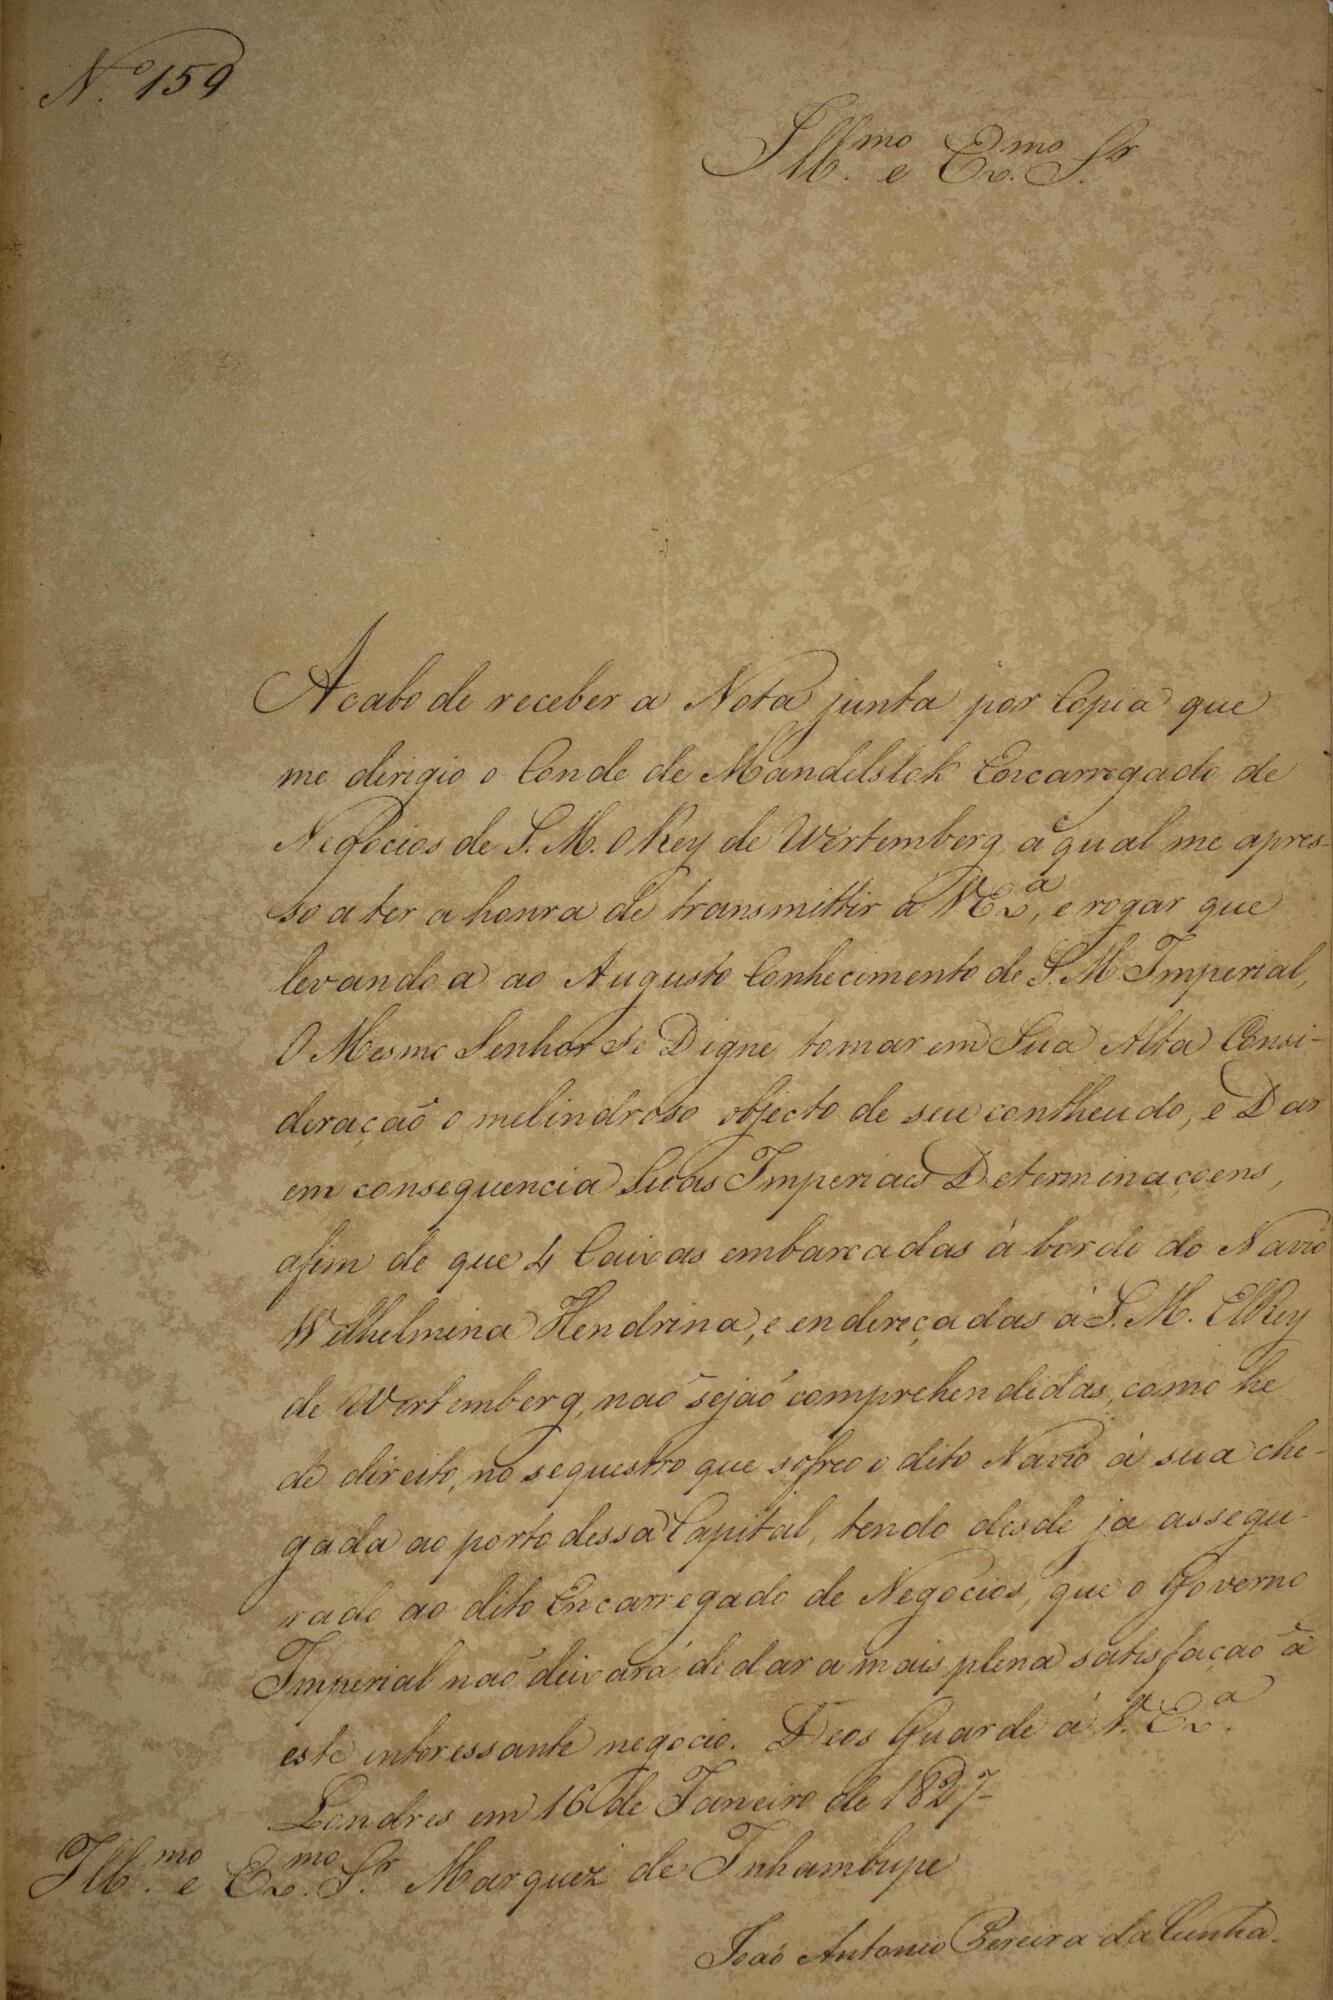 N.º 159
Ill.mo e Ex.mo Sr.
Acabo de receber a Nota junta por Copia que
me dirigio o Conde de Mandelslok Encarregado de
Negocios de S. M. O Rey de Wertemberg, a qual me apres-
so a ter a honra de transmittir a V. Ex.a, e rogar que
levando a ao Augusto Conhecimento de S. M. Imperial,
O Mesmo Senhor Se Digne tomar em Sua Alta Consi-
deração o melindroso objecto de seu contheudo, e Dar
em consequencia Suas Imperiaes Determinaçoens,
afim de que 4 Caixas embarcadas à bordo do Navio
Wilhelmina Hendrina, e endereçadas à S. M. ElRey
de Wertemberg, naõ sejaõ comprehendidas, como he
de direito, no sequestro que sofreo o dito Navio à sua che-
gada ao porto dessa Capital, tendo desde ja assegu-
rado ao dito Encarregado de Negocios, que o Governo
Imperial naõ deixará de dar a mais plena satisfaçaõ à
este interessante negocio. Deos Guarde á V. Ex.a.
Londres em 16 de Janeiro de 1827
Ill.mo e Ex.mo Sr. Marquez de Inhambupe
Joaõ Antonio Pereira da Cunha.